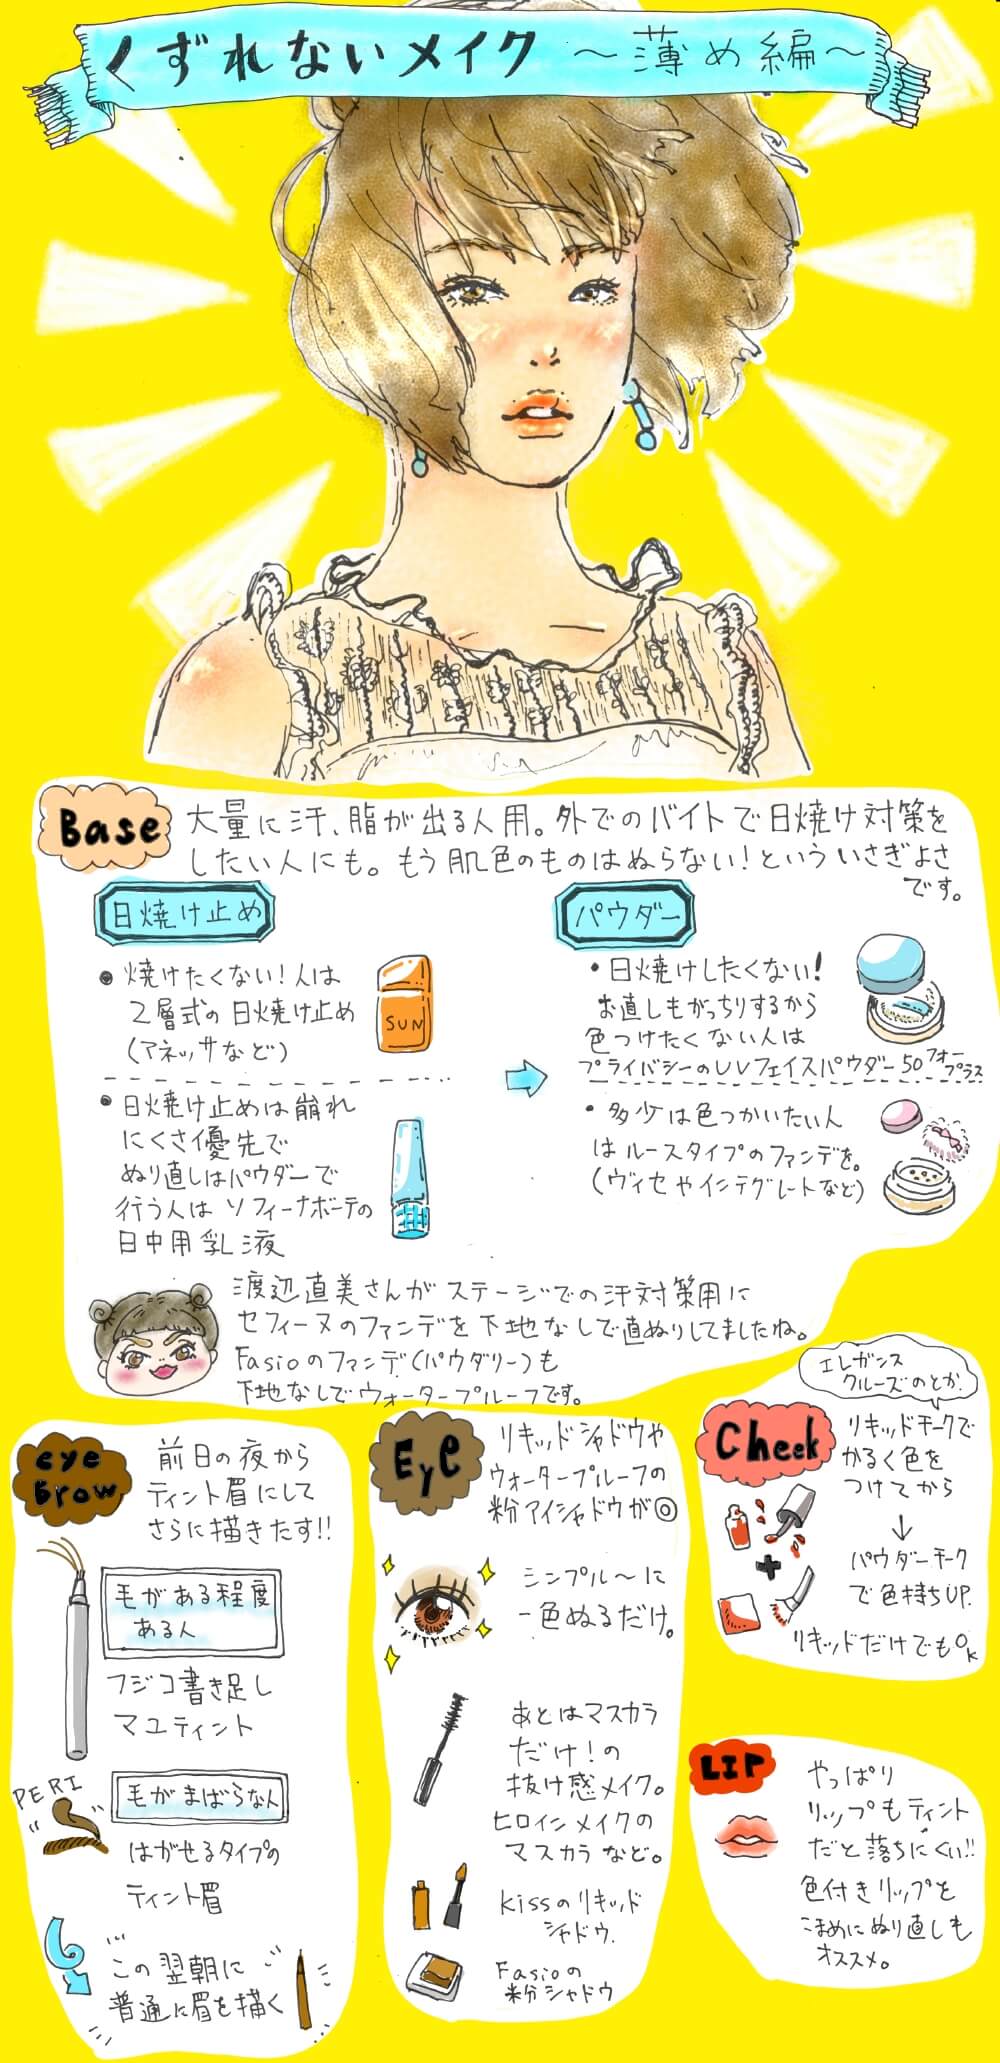 くずれないメイク 〜薄め編〜
Base
大量に汗、脂が出る人用。外でのバイトで日焼け対策を
したい人にも。もう肌色のものはぬらない!といういさぎよさ
です。
日焼け止め
・焼けたくない!人は
2層式の日焼け止め
(アネッサなど)
SUN
・日焼け止めは崩れ
にくさ優先で
ぬり直しはパウダーで
行う人はソフィーナボーテの
日中用乳液
パウダー
・日焼けしたくない!
お直しもがっちりするから
色つけたくない人は
プライバシーのUVフェイスパウダー50フォー
プラス
・多少は色つかいたい人
はルースタイプのファンデを。
(ヴィセやインテグレートなど)
渡辺直美さんがステージでの汗対策用に
セフィーヌのファンデを下地なしで直ぬりしてましたね。
Fasioのファンデ(パウダリー)も
下地なしでウォータープルーフです。
eye
Brow
前日の夜から
ティント眉にして
さらに描きたす!!
毛がある程度
ある人
フジコ書き足し
マユティント
PERI
毛がまばらな人
はがせるタイプの
ティント眉
この翌朝に
普通に眉を描く
Eye
リキッドシャドウや
ウォータープルーフの
粉アイシャドウが◎
シンプル〜に
一色ぬるだけ。
あとはマスカラ
だけ!の
抜け感メイク。
ヒロインメイクの
マスカラなど。
kissのリキッド
シャドウ.
Fasioの
粉シャドウ
エレガンス
クルーズのとか.
Cheek
リキッドチークで
かるく色を
つけてから
↓
パウダーチーク
で色持ちUP.
リキッドだけでもOk
LIP
やっぱり
リップもティント
だと落ちにくい!!
色付きリップを
こまめにぬり直しも
オススメ。